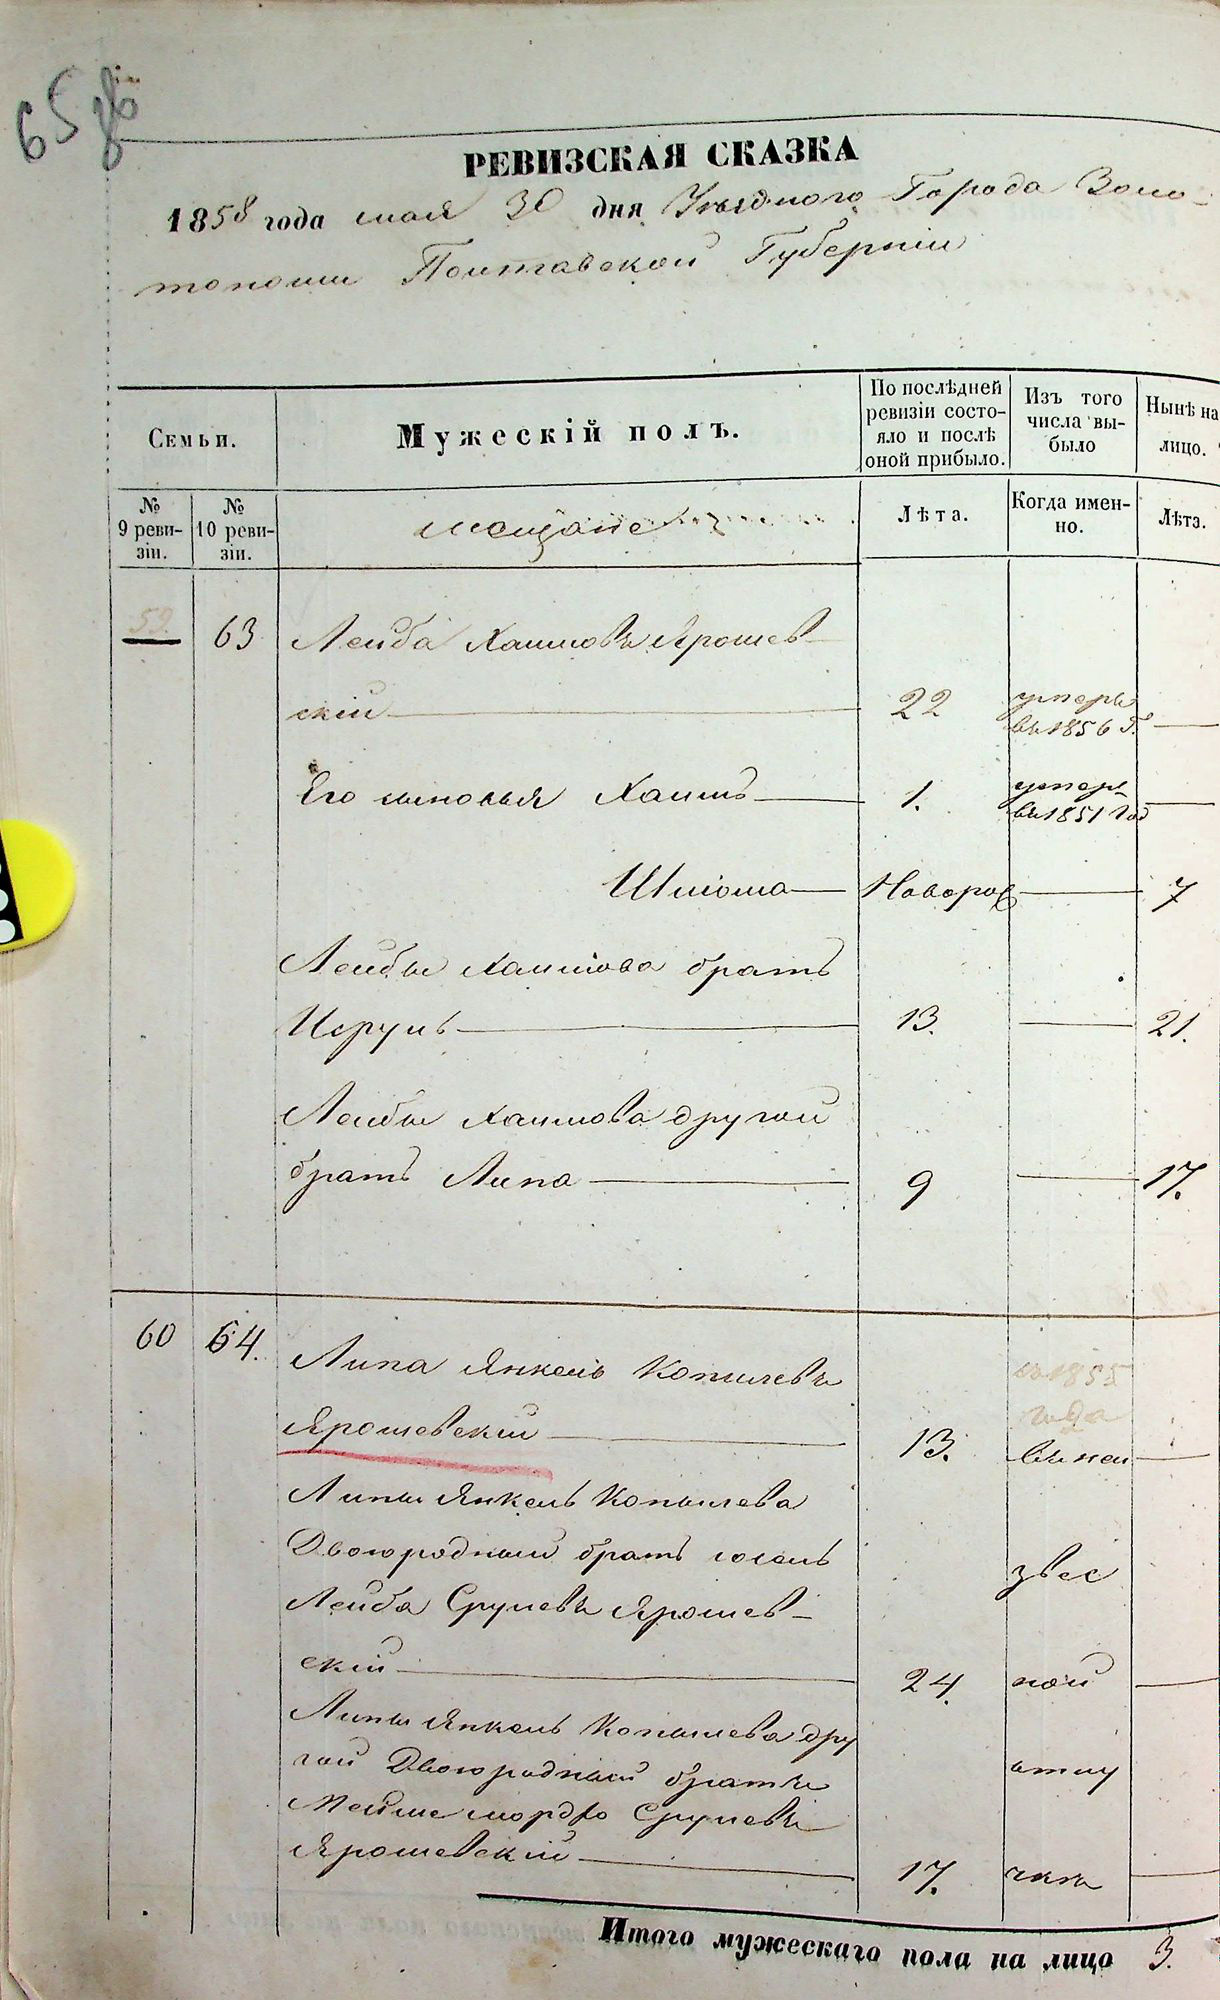 65
РЕВИЗСКАЯ СКАЗКА
1858 года мая 30 дня Уѣзднаго Города Золо-
тоноши Полтавской Губерніи
Семьи.
Мужескій полъ.
По послѣдней ревизіи состо-
яло и послѣ
оной прибыло.
Изъ того
числа вы-
было
Нынѣ на
лицо.
№
9 реви-
зіи.
№
10 реви-
зіи.
мещане
Лѣта.
Когда имен-
но.
Лѣта.
59 63 Лейба Хаимовъ Ярошев-
скій 22 умеръ
въ 1856 г.
Его сыновья Хаимъ 1. умеръ
въ 1851 год
Шліома Новорож 7
Лейбы Хаимова братъ
Исруль 13. 21.
Лейбы Хаимова другой
братъ Липа 9 17.
60 64. Липа Янкель Копилевъ
въ 1855
года
Ярошевскій 13. въ неи
Липы Янкель Копылева
Двоюродный братъ Іосель
звес
Лейба Срулевъ Ярошев-
скій 24. ной
Липы Янкель Копылева дру
гой Двоюродный братъ
отлу
Мейше Мордко Срулевъ
Ярошевскій 17. чкѣ
Итого мужескаго пола на лицо 3.